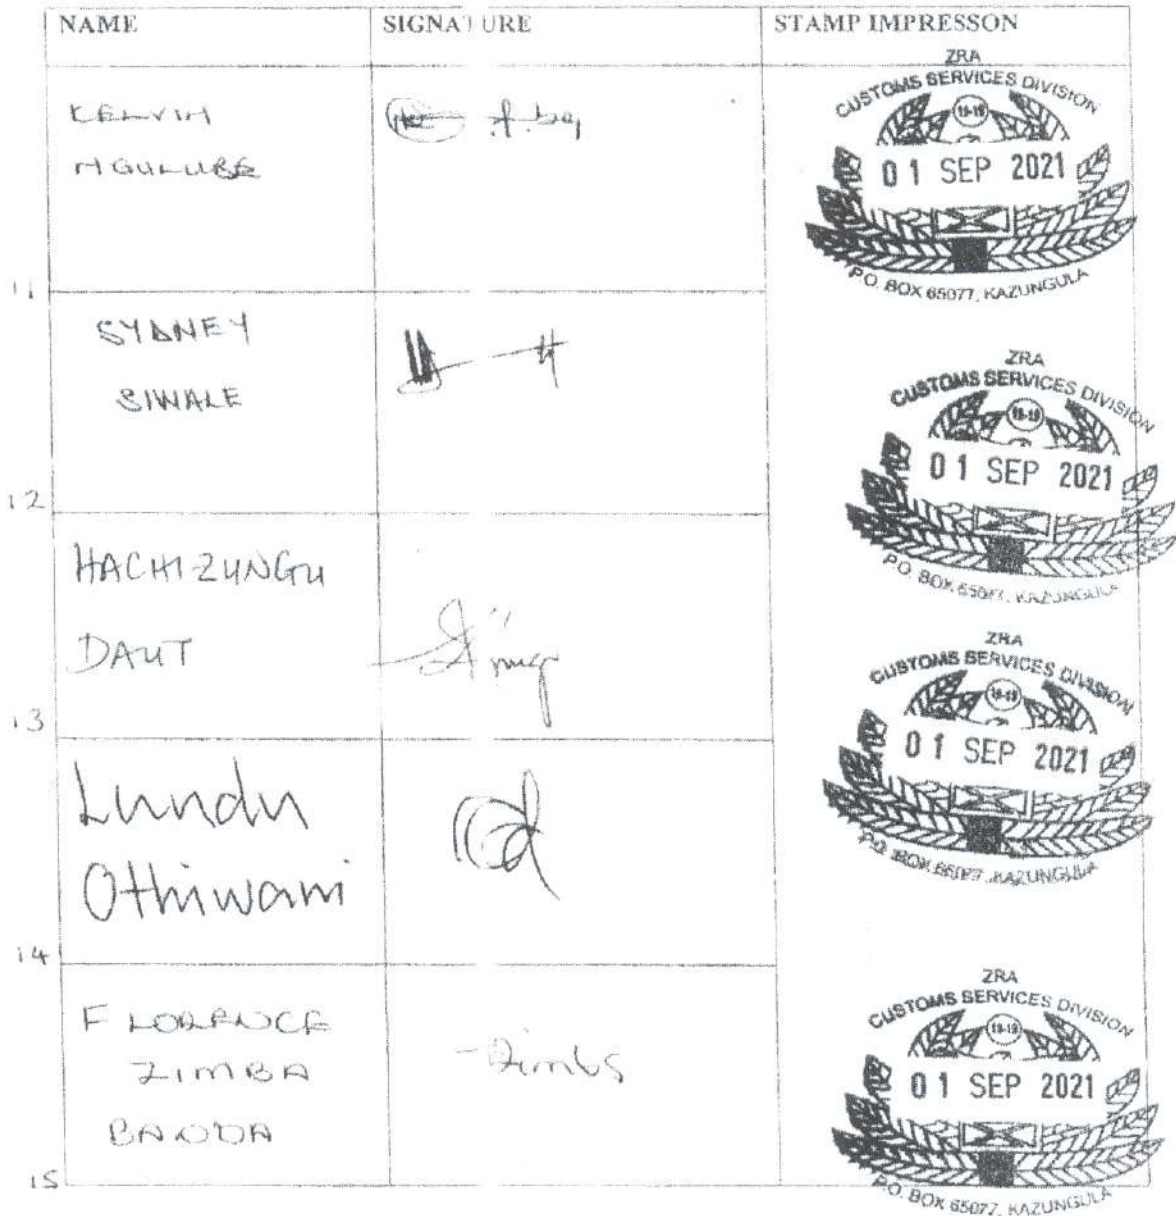 NAME SIGNATURE STAMP IMPRESSON
KELVIN
NGULUBE
ZRA
CUSTOMS SERVICES DIVISION
19-19
01 SEP 2021
P.O. BOX 65077, KAZUNGULA
11
SYDNEY
SIWALE
ZRA
CUSTOMS SERVICES DIVISION
19-19
01 SEP 2021
P.O. BOX 65077, KAZUNGULA
12
HACHIZUNGU
DAUT
ZRA
CUSTOMS SERVICES DIVISION
19-19
01 SEP 2021
P.O. BOX 65077, KAZUNGULA
13
Lundu
Othiwami
14
FLORENCE
ZIMBA
BANDA
Zimba
ZRA
CUSTOMS SERVICES DIVISION
19-19
01 SEP 2021
P.O. BOX 65077, KAZUNGULA
15